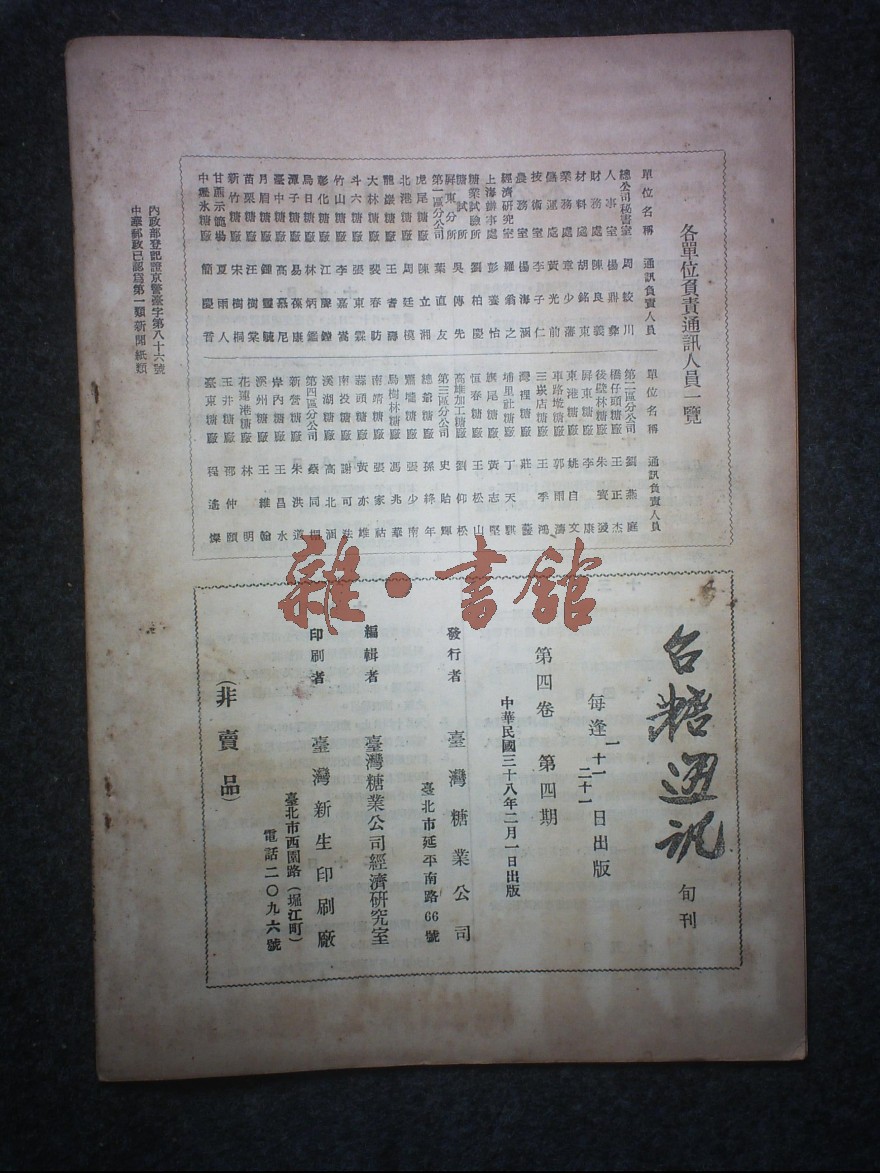 各單位負責通訊人員一覽
單位名稱 通訊負責人員
總公司秘書室 周蛟川
人事室 楊鼎彝
財務處 陳良義
材料處 胡銘東
業務處 章少藩
儲運處 黃光前
技術室 李子仁
農務室 楊海涵
經濟研究室 羅翁之
上海辦事處 彭養怡
糖業試驗所 劉柏慶
糖試所屏東分所 吳傳先
第一區分公司 葉直友
虎尾糖廠 陳立湘
北港糖廠 周廷模
龍巖糖廠 王書壽
大林糖廠 裴春防
斗六糖廠 張東霖
竹山糖廠 李嘉嵩
彰化糖廠 江慶鏜
烏日糖廠 林炳鑑
潭子糖廠 易葆康
臺中糖廠 高慕尼
月眉糖廠 鍾靈毓
苗栗糖廠 汪樹棠
新竹糖廠 宋樹桐
甘蔗示範場 夏雨人
中農氷糖廠 簡慶晉
單位名稱 通訊負責人員
第二區分公司 劉燕庭
橋仔頭糖廠 王正杰
後壁林糖廠 朱寰
屏東糖廠 李康
東港糖廠 姚自文
車路墘糖廠 郭雨濤
三崁店糖廠 王季鴻
灣裡糖廠 莊
埔里社糖廠 丁天騏
旗尾糖廠 黃志堅
恒春糖廠 王松山
高雄加工糖廠 劉仰松
第三區分公司 史貽輝
總爺糖廠 孫絳年
蕭壠糖廠 張少南
烏樹林糖廠 馮兆華
南靖糖廠 張家祜
蒜頭糖廠 黃亦雄
南投糖廠 謝可
溪湖糖廠 高北涵
第四區分公司 蔡同
新營糖廠 朱洪道
岸內糖廠 王昌水
溪州糖廠 王維翰
花蓮港糖廠 林明
玉井糖廠 邢仲頤
臺東糖廠 程遙燦
內政部登記證京警臺字第八十六號
中華郵政已認爲第一類新聞紙類
台糖通訊 旬刊
每逢一十一二十一日出版
第四卷 第四期
中華民國三十八年二月一日出版
發行者 臺灣糖業公司
臺北市延平南路66號
編輯者 臺灣糖業公司經濟研究室
印刷者 臺灣新生印刷廠
臺北市西園路（堀江町）
電話二〇九六號
（非賣品）
雜·書館